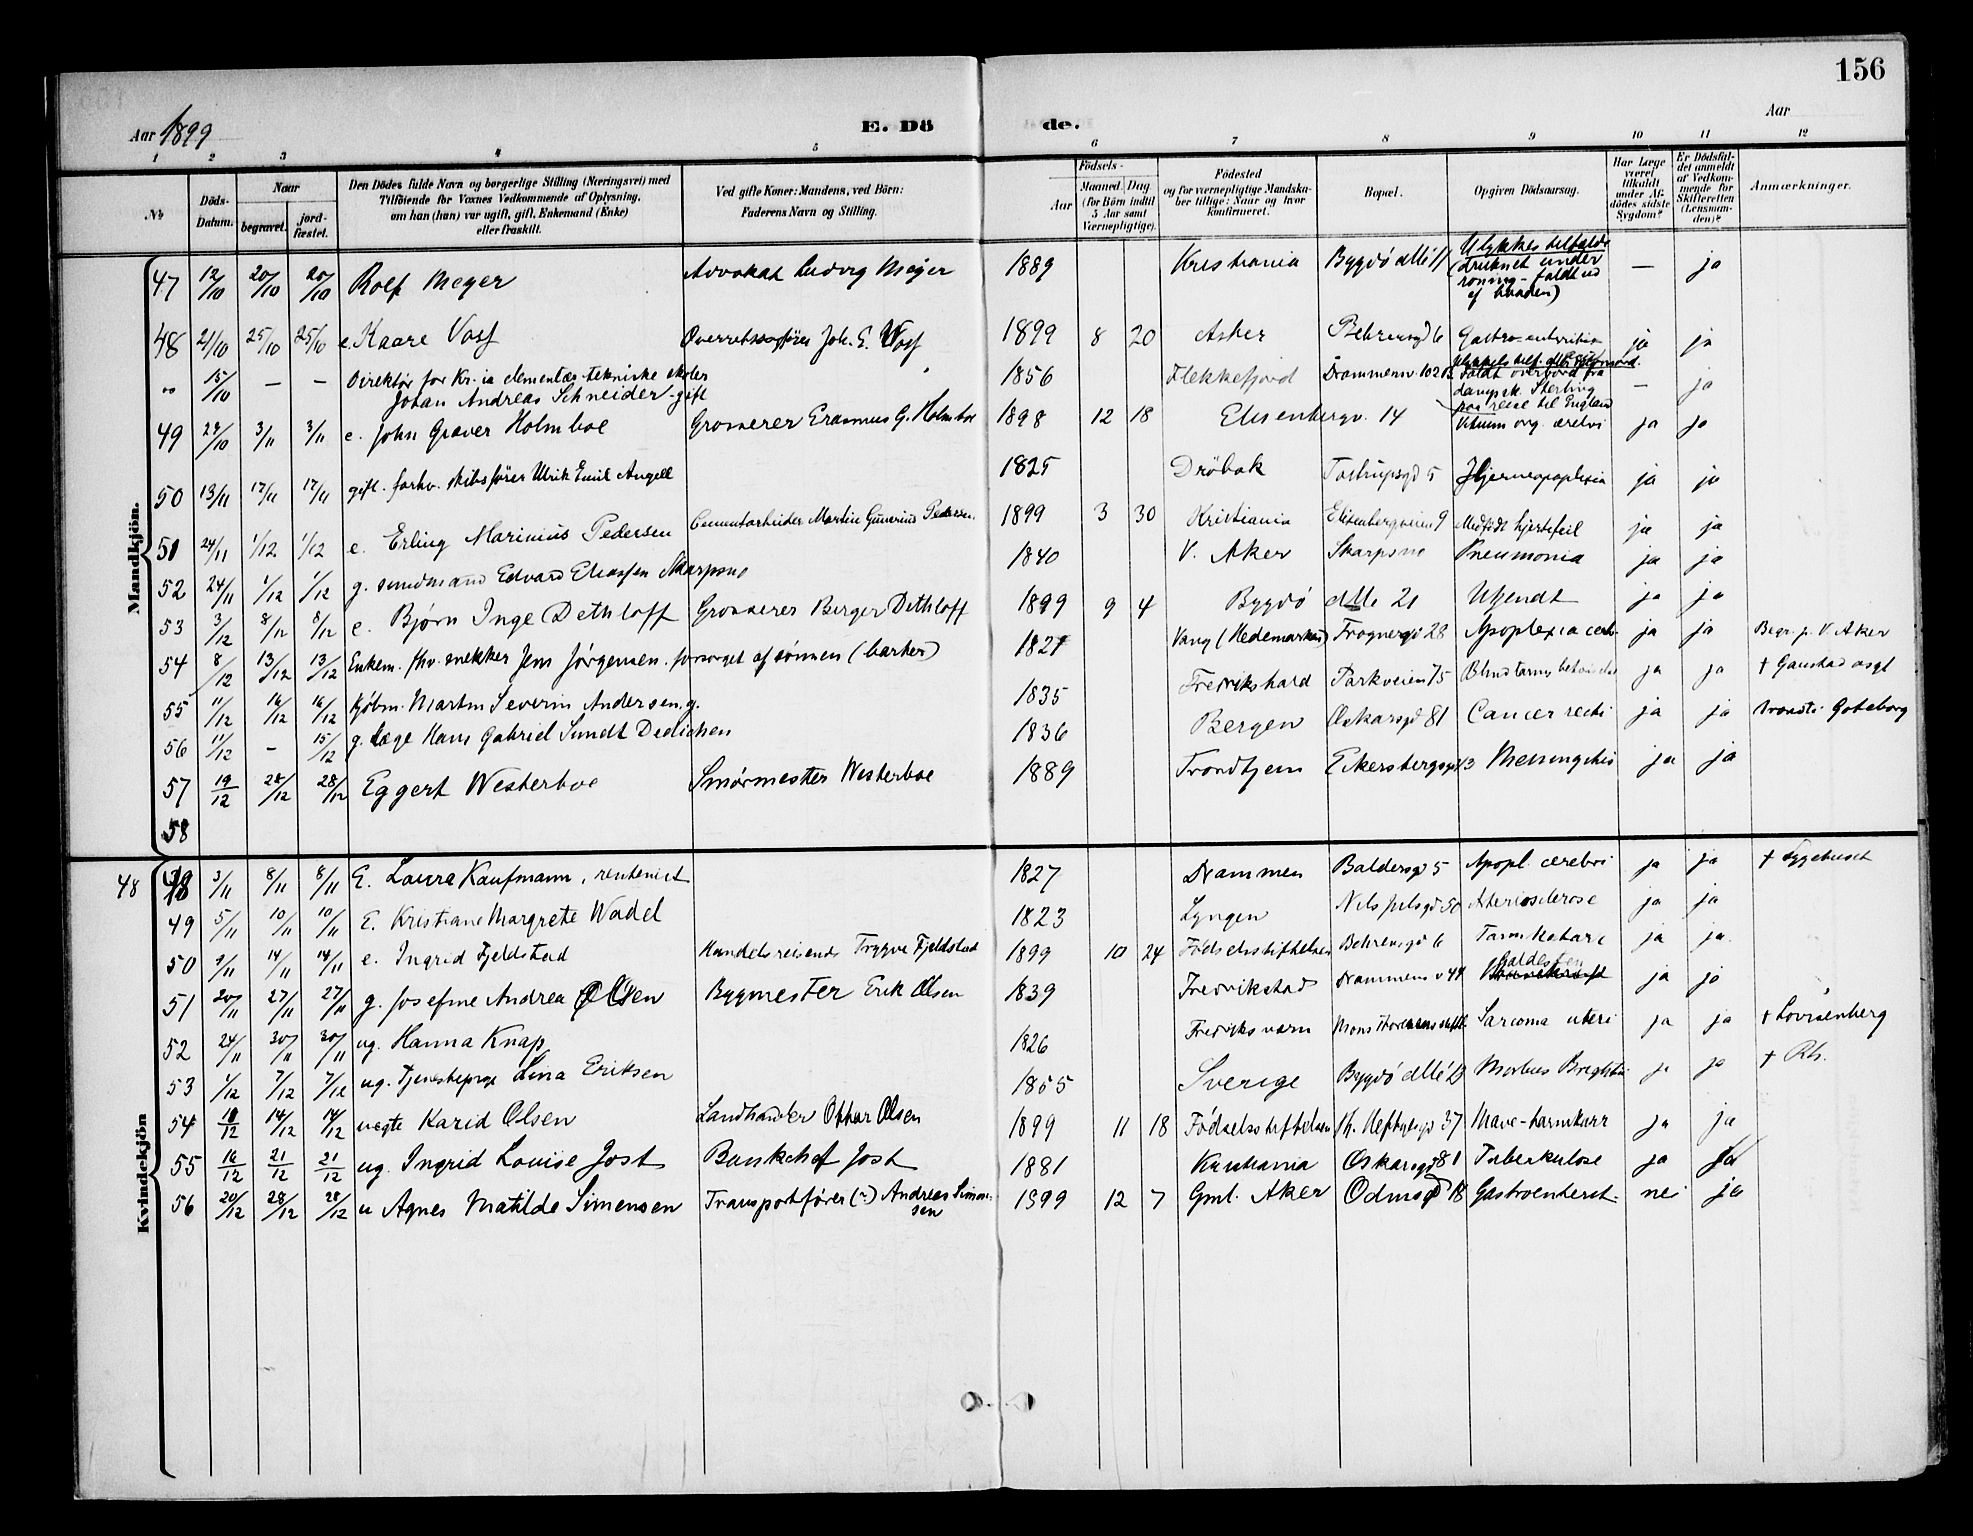 156
Aar 1899
E. Dö de.
Aar
1 2 3 4 5 6 7 8 9 10 11 12
No
Döds-Datum.
Naar
begravet.
jord-fæstet.
Den Dödes fulde Navn og borgerlige Stilling (Næringsvei) med
Tilföiende for Voxnes Vedkommende af Oplysning,
om han (hun) var ugift, gift, Enkemand (Enke)
eller fraskilt.
Ved gifte Koner: Mandens, ved Börn:
Faderens Navn og Stilling.
Födsels-
Aar
Maaned. Dag
(for Börn indtil
5 Aar samt
Værnepligtige).
Födested
og for værnepligtige Mandska-
ber tillige: Naar og hvor
konfirmeret.
Bopæl.
Opgiven Dödsaarsag.
Har Læge
været
tilkaldt
under Af-
dödes sidste
Sygdom?
Er Dödsfal-
det anmeldt
af Vedkom-
mende for
Skifteretten
(Lensman-
den)?
Anmærkninger.
Mandkjön.
47 12/10 20/10 20/10 Rolf Meyer Advokat Ludvig Meyer 1889 Kristiania Bygdö allé 11 Ulykkestilfælde (druknet under roning - faldt ud af baaden) — ja
48 21/10 25/10 25/10 e. Kaare Voss Overretssagfører Joh. E. Voss 1899 8 20 Asker Behrensgd 6 Gastro-enteritis ja ja
" 15/10 — — Direktör for Kr.ia elementær-tekniske skoler Johan Andreas Schneider - gift 1856 Flekkefjord Drammensv. 102 faldt overbord fra dampsk. Sterling paa reise til England — ja
49 29/10 3/11 3/11 e. John Graver Holmboe Grosserer Erasmus G. Holmboe 1898 12 18 Elisenbergv. 14 Vitium org. ja ja
50 13/11 17/11 17/11 gift. forhv. skibsfører Ulrik Emil Angell 1825 Dröbak Tostrupsgd 5 Hjerneapoplexia ja ja
51 24/11 1/12 1/12 e. Erling Marinius Pedersen Cementarbeider Martin Gunerius Pedersen. 1899 3 30 Kristiania Elisenbergveien 9 Medfödt hjertefeil ja ja
52 24/11 1/12 1/12 g. Edvard Eliassen Skarpsno 1840 V. Aker Skarpsno Pneumonia ja ja
53 3/12 8/12 8/12 e. Björn Inge Dethloff Grosserer Berger Dethloff 1899 9 4 Bygdö alle 21 Ukjendt ja ja
54 8/12 13/12 13/12 Enkem. fhv. snekker Jens Jörgensen. forsörget af sönnen (barber) 1821 Vang (Hedemarken) Frognergd 28 Apoplexia cerb. ja ja Begr. p. V. Aker
55 11/12 16/12 16/12 Kjöbm. Martin Severin Andersen, g. 1835 Fredrikshald Parkveien 75 ja ja † Gaustad asyl
56 11/12 — 15/12 g. læge Hans Gabriel Sundt Dedichen 1836 Bergen Oskarsgd 81 Cancer recti ja ja Brændt i Göteborg
57 19/12 28/12 28/12 Eggert Westerboe Smörmester Westerboe 1889 Trondhjem Eckersbergsgd 13 Meningitis ja ja
58
Kvindekjön
48 48 3/11 8/11 8/11 E. Laura Kaufmann, rentenist 1827 Drammen Baldersgd 5 Apopl. cerebri ja ja † Sygehuset
49 5/11 10/11 10/11 E. Kristiane Margrete Wadel 1823 Lyngen Nils Julsgd 50 Ateriosclerose ja ja
50 9/11 14/11 14/11 e. Ingrid Fjeldstad Handelsreisende Trygve Fjeldstad 1899 10 24 Födselsstiftelsen Behrensgd 6 Tarmkatarr ja ja
51 20/11 27/11 27/11 g. Josefine Andrea Olsen Bygmester Erik Olsen 1839 Fredrikstad Drammensv 44 Galdesten ja ja
52 24/11 30/11 30/11 ug. Hanna Knap 1826 Fredriksværn Sarcoma uteri ja ja † Lovisenberg
53 1/12 7/12 7/12 ug. Tjenestepige Lina Eriksen 1855 Sverige Bygdö allé Morbus Brightii ja ja † Rh.
54 11/12 14/12 14/12 uegte Karid Olsen Landhandler Olsen 1899 11 18 Födselsstiftelsen Th. Heftyesgd 37 Mave-tarmkatarr ja ja
55 16/12 21/12 21/12 ug. Ingrid Louise Jost Bankchef Jost 1881 Kristiania Oskarsgd 81 Tuberkulose ja ja
56 20/12 28/12 28/12 u Agnes Matilde Simensen Transportförer (?) Andreas Simensen 1899 12 7 Gml. Aker Odinsgd 18 Gastroenterit. nei ja